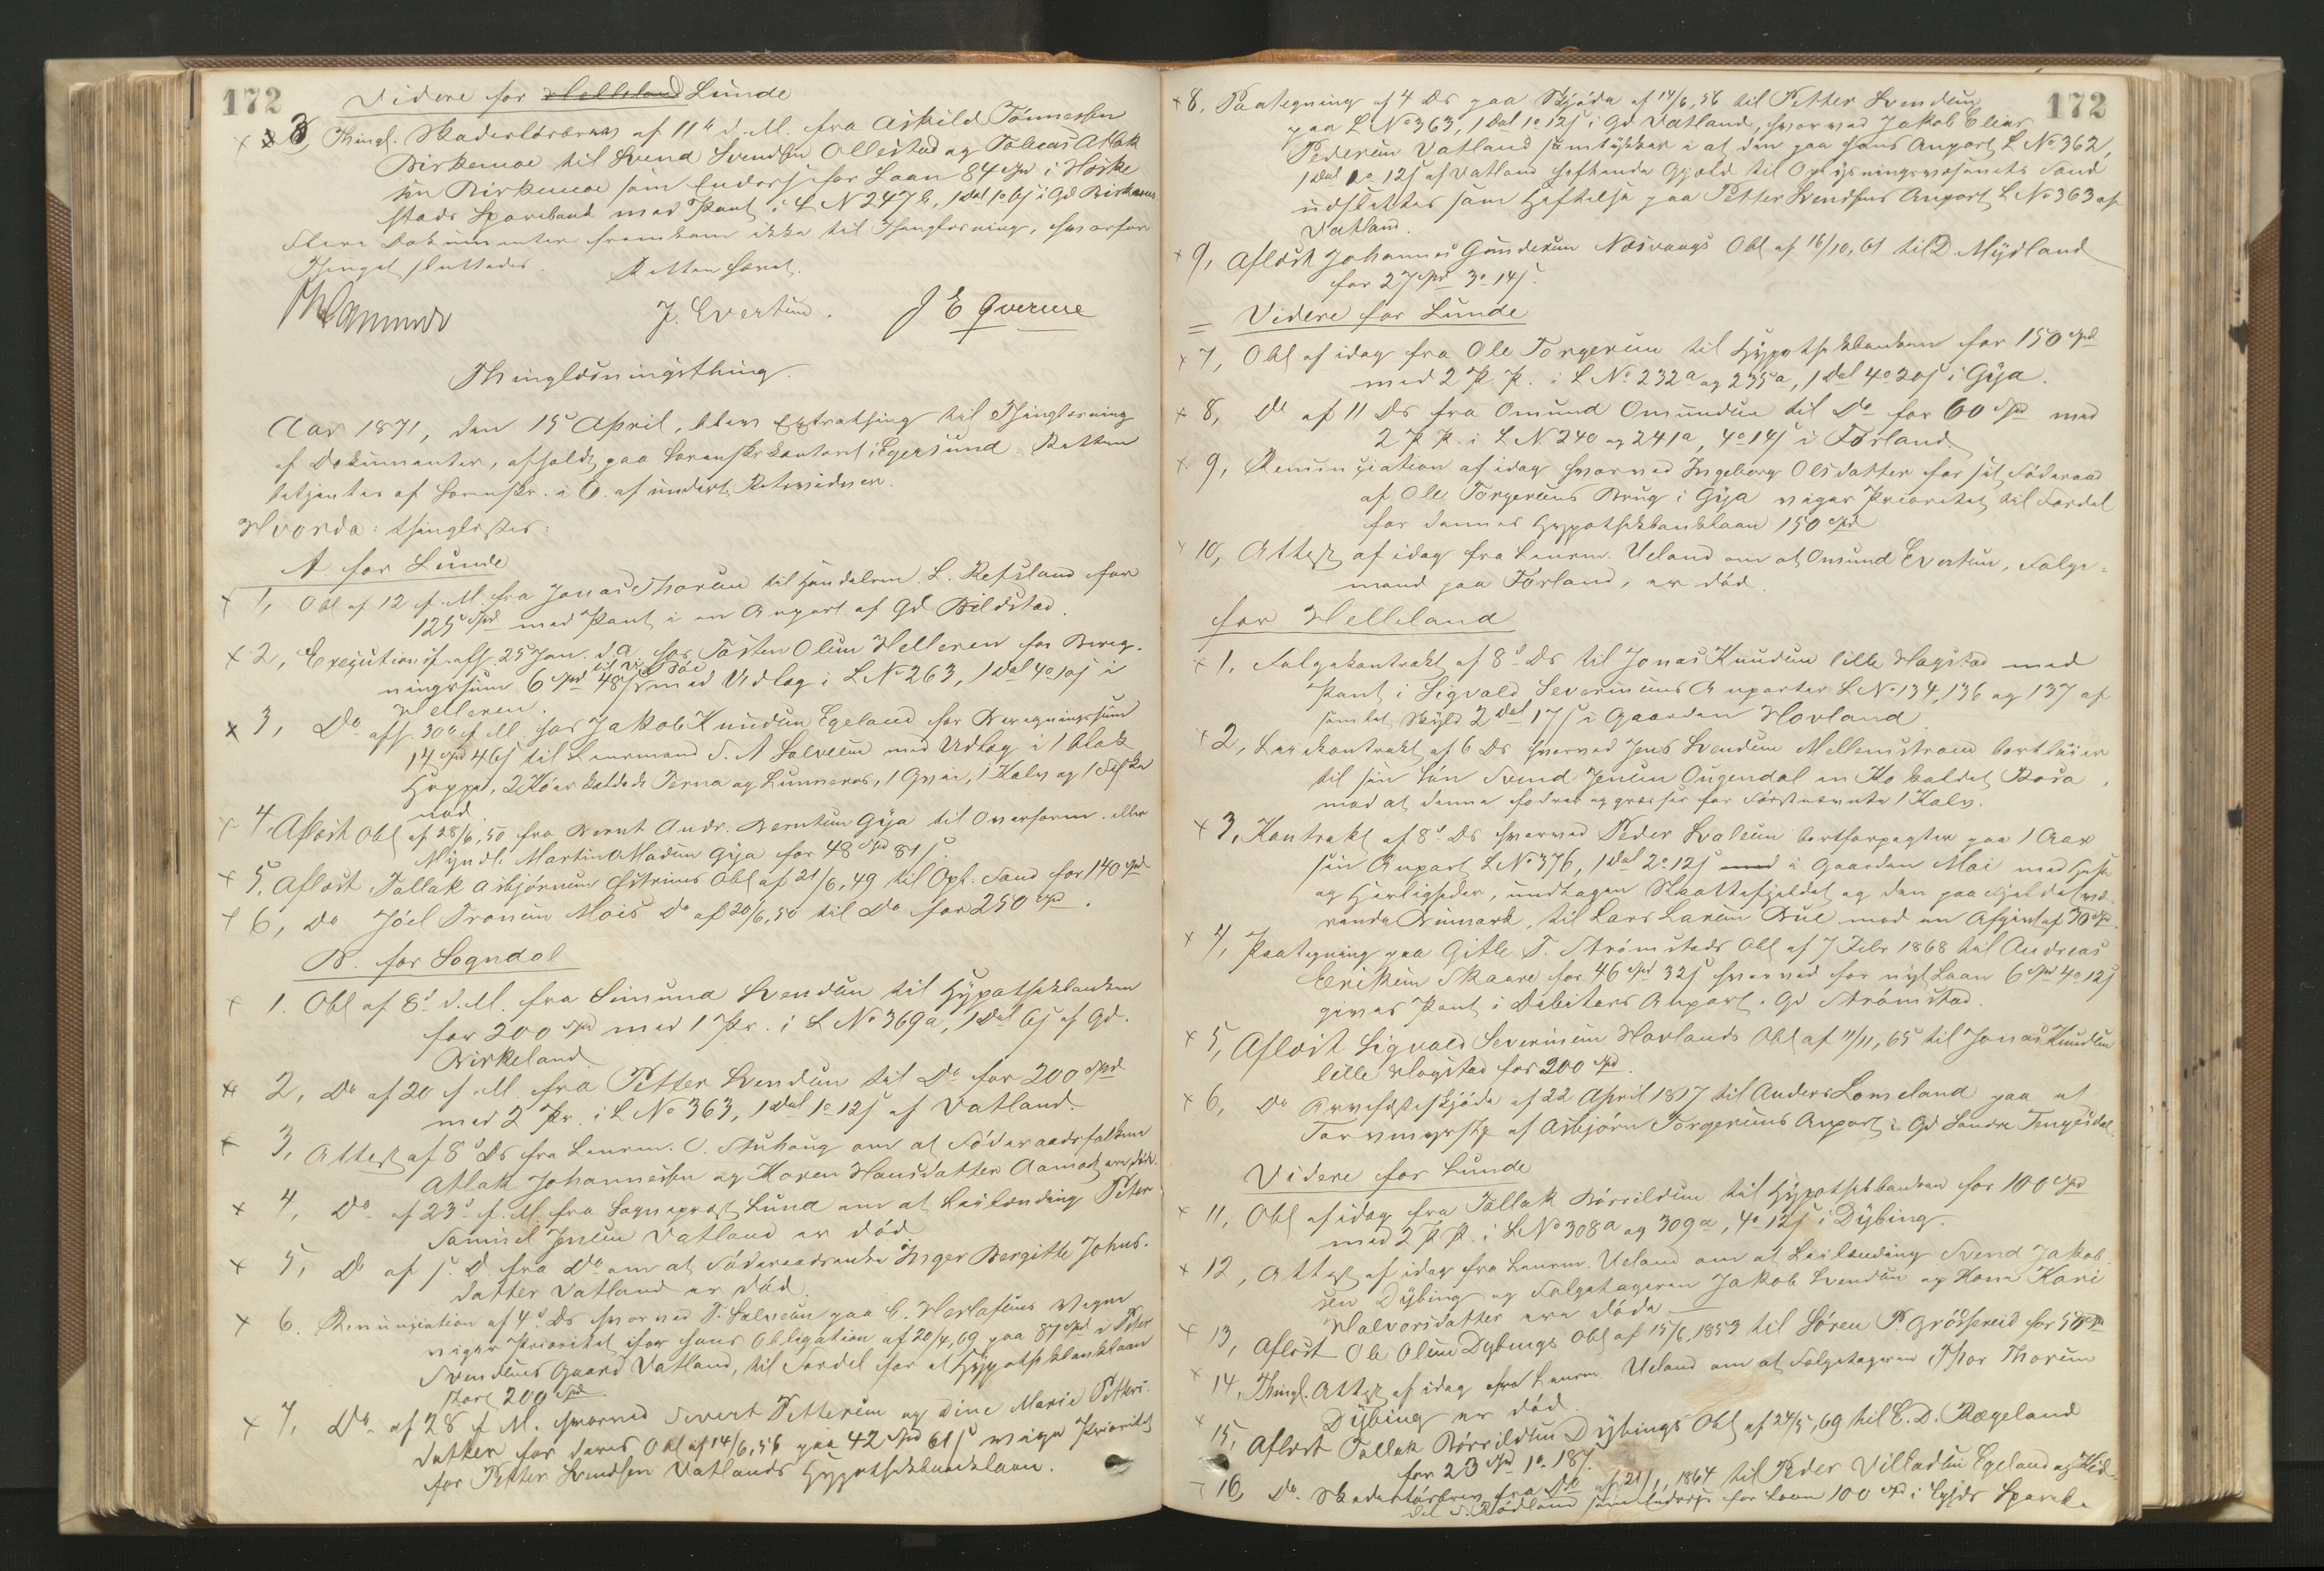 172
Videre for Helleland Lunde
3, Thingl. Skadesløsbrev af 11te d. M. fra Askild Tønnessen
Birkemoe til Svend Svendsen Ollestad og Tobias Atlak
sen Birkemoe som Endoss. for Laan 84 Spd i Heske
stads Sparebank med Pant i L N 247 b, 1 Dal 1o 6s i Gd Birkemoe
Flere Dokumenter fremkom ikke til Thinglæsning, hvorfor
Thinget sluttedes. Retten hævet.
J. Evertsen. J E Qverme
Thinglæsningsthing.
Aar 1871, den 15de April, blev Extrathing til Thinglæsning
af Dokumenter, afholdt paa Sorenskr.kontoret i Egersund. Retten
betjentes af Sorenskr. i O. af undert. Retsvidner.
Hvorda: thinglæstes:
A. for Lunde
1, Obl af 12 f. M. fra Jonas Thorsen til Handelsm. L. Refsland for
125 Spd med Pant i en Anpart af Gd Bilstad.
2, Execution aff. 25 Jan. d. A. hos Tosten Olsen Helleren for Bereg-
ningssum 6 Spd 48s med Udlæg i L No 263, 1 Dal 4o 10s i
Helleren.
3, Do aff. 30te f. M. hos Jakob Knudsen Egeland for Beregningssum
14 Spd 46s til Lensmand S. A. Salvesen med Udlæg i 1 blak
Hoppe, 2 Køer kaldede Terna og Lunneros, 1 Qvie, 1 Kalv og 1 Fiske
nod.
4 Aflæst Obl af 28/6, 50 fra Bernt Andr. Berntsen Gya til Overform. eller
Myndl. Martin Madsen Gya for 48 Spd 81s.
5, Aflæst Tallak Asbjørnsen Østrems Obl af 21/6, 49 til Opl. Fand for 140 Spd
6, Do Joel Tronsen Mois Do af 20/6, 50 til Do for 250 Spd.
B. for Sogndal
1. Obl af 8de d. M. fra Simund Svendsen til Hypothekbanken
for 200 Spd med 1 Pr. i L No 369a, 1 Dal 6s af Gd.
Birkeland
2, Do af 20 f. M. fra Petter Svendsen til Do for 200 Spd
med 2 Pr. i L No 363, 1 Dal 1o 12s af Vatland.
3, Attest af 8de Ds fra Lensm. O. Stuhaug om at Føderaadsfolkene
Atlak Johannessen og Karen Hansdatter Aamodt ere døde.
4, Do af 23de f. M. fra Sogneprest Lund om at Leilænding Peter
Samuel Jensen Vatland er død.
5, Do af s. D. fra Do om at Føderaadsenke Inger Bergitte Johns-
datter Vatland er død.
6. Renunciation af 4de Ds hvorved T. Salvesen paa E. Herlofsens Vegne
viger Prioritet for hans Obligation af 20/4, 69 paa 87 Spd i Peter
Svendsens Gaard Vatland, til Fordel for et Hypothekbanklaan
stort 200 Spd.
7, Do af 28 f M. hvorved Sivert Pettersen og Dine Marie Petters-
datter for deres Obl af 14/6, 56 paa 42 Spd 61s viger Prioritet
for Petter Svendsen Vatlands Hypothekbanklaan.
172
8. Paategning af 4 Ds paa Skjøde af 14/6, 56 til Petter Svendsen
paa L No 363, 1 Dal 1o 12s i Gd Vatland, hvorved Jakob Elias
Pedersen Vatland samtykker i at den paa hans Anpart L No 362,
1 Dal 1o 12s af Vatland heftende Gjæld til Oplysningsvæsenets Fond
udslettes som Heftelse paa Petter Svendsens Anpart L No 363 af
Vatland.
9, Aflæst Johannes Gundersen Næsvaags Obl af 16/10, 61 til D. Mydland
for 27 Spd 3o 14s.
Videre for Lunde
7, Obl af idag fra Ole Torgersen til Hypothekbanken for 150 Spd
med 2 P. P. i L No 232a og 235a, 1 Dal 4o 20s i Gya.
8, Do af 11 Ds fra Omund Omundsen til Do for 60 Spd med
2 P. P. i L N 240 og 241a, 4o 14s i Førland
9, Renunciation af idag hvorved Ingeborg Olsdatter for sit Føderaad
af Ole Torgersens Brug i Gya viger Prioritet til Fordel
for dennes Hypothekbanklaan 150 Spd
10, Attest af idag fra Lensm. Ueland om at Omund Evertsen, Folge-
mand paa Førland, er død.
for Helleland
1, Folgekontrakt af 8de Ds til Jonas Knudsen lille Hagstad med
Pant i Sigvald Severinsens Anparter L No 134, 136 og 137 af
samlet Skyld 2 Dal 17s i Gaarden Hovland
2, Leiekontrakt af 6 Ds hvorved Jens Svendsen Mellemstrøm bortleier
til sin Søn Svend Jensen Ougendal en Ko kaldet Rosa,
mod at denne fodrer og græsser for Førstnævnte 1 Kalv.
3, Kontrakt af 8de Ds hvorved Peder Svalesen bortforpagter paa 1 Aar
sin Anpart L No 376, 1 Dal 2o 12s i Gaarden Moi med Huse
og Herligheder, undtagen Skaattefjeldet og den paa Fjeldet væ-
rende Bumark, til Lars Larsen Bue mod en Afgift af 30 Spd.
4, Paategning paa Gitle T. Strømstads Obl af 7 Febr 1868 til Andreas
Eriksen Skaare for 46 Spd 32s hvorved for nyt Laan 6 Spd 4o 12s
gives Pant i Debitors Anpart i Gd Strømstad.
5, Aflæst Sigvald Severinsen Hovlands Obl af 11/11, 65 til Jonas Knudsen
lille Hagstad for 200 Spd.
6, Do Arvefæsteskjøde af 22 April 1817 til Anders Lomeland paa et
Torvmyrstk af Asbjørn Torgersens Anpart i Gd Søndre Tengesdal.
Videre for Lunde
11, Obl af idag fra Tallak Børrildsen til Hypothekbanken for 100 Spd
med 2 P. P. i L No 308a og 309a, 4o 12s i Dybing.
12, Attest af idag fra Lensm. Ueland om at Leilænding Svend Jakob
sen Dybing og Folgetageren Jakob Svendsen og Kone Kari
Halvorsdatter ere døde.
13, Aflæst Ole Olsen Dybings Obl af 15/6, 1853 til Søren P. Grødsreid for 50 Spd
14, Thingl. Attest af idag fra Lensm Ueland om at Folgetageren Thor Thorsen
Dybing er død.
15, Aflæst Tallak Børrildsen Dybings Obl af 24/5, 69 til E. D. Rægeland
for 23 Spd 1o 18s.
16 Do. Skadesløsbrev fra Do af 21/1, 1864 til Peder Villadsen Egeland og
S. Rødland som Endoss. for Laan 100 Spd i Egsds Spareb.